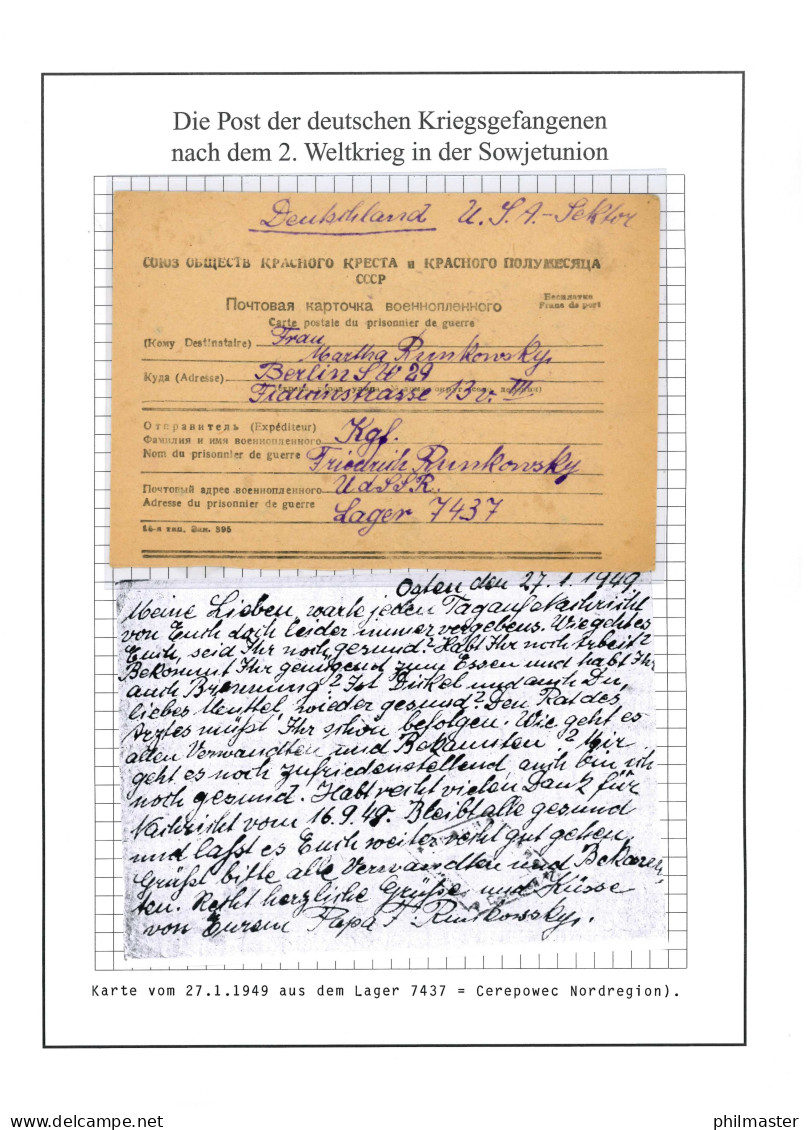 Die Post der deutschen Kriegsgefangenen
nach dem 2. Weltkrieg in der Sowjetunion
Deutschland U.S.A.-Sektor
СОЮЗ ОБЩЕСТВ КРАСНОГО КРЕСТА и КРАСНОГО ПОЛУМЕСЯЦА
СССР
Почтовая карточка военнопленного
Бесплатно
Franc de port
Carte postale du prisonnier de guerre
(Кому Destinataire) Frau
Martha Runkowsky,
Куда (Adresse) Berlin SW 29
Fidicinstrasse 13 v. III
Отправитель (Expéditeur)
Фамилия и имя военнопленного Kgf.
Nom du prisonnier de guerre Friedrich Runkowsky
Почтовый адрес военнопленного UdSSR.
Adresse du prisonnier de guerre Lager 7437
14-я тип. Зак. 595
den 27.1.1949
Meine Lieben, warte jeden Tag auf Nachricht
von Euch doch leider immer vergebens. Wie geht es
Euch, seid Ihr noch gesund? Habt Ihr noch Arbeit?
Bekommt Ihr genügend zum Essen und habt Ihr
auch Brennung? Ist und auch Du,
liebes wieder gesund? Den Rat des
Arztes müßt Ihr schön befolgen. Wie geht es
allen Verwandten und Bekannten? Mir
geht es noch zufriedenstellend, auch bin ich
noch gesund. Habt recht vielen Dank für
Nachricht vom 16.9.49. Bleibt alle gesund
und laßt es Euch weiter recht gut gehen.
Grüßt bitte alle Verwandten und Bekann-
ten. Recht herzliche Grüße und Küsse
von Eurem Papa F. Runkowsky.
Karte vom 27.1.1949 aus dem Lager 7437 = Cerepowec Nordregion).
www.delcampe.net
philmaster